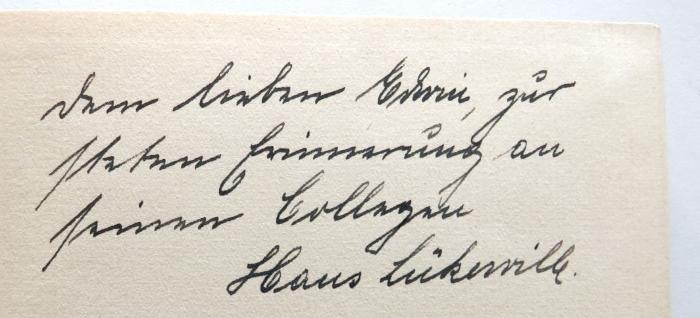 Dem lieben Edwin, zur
steten Erinnerung an
seinen Collegen
Hans Lükewille.